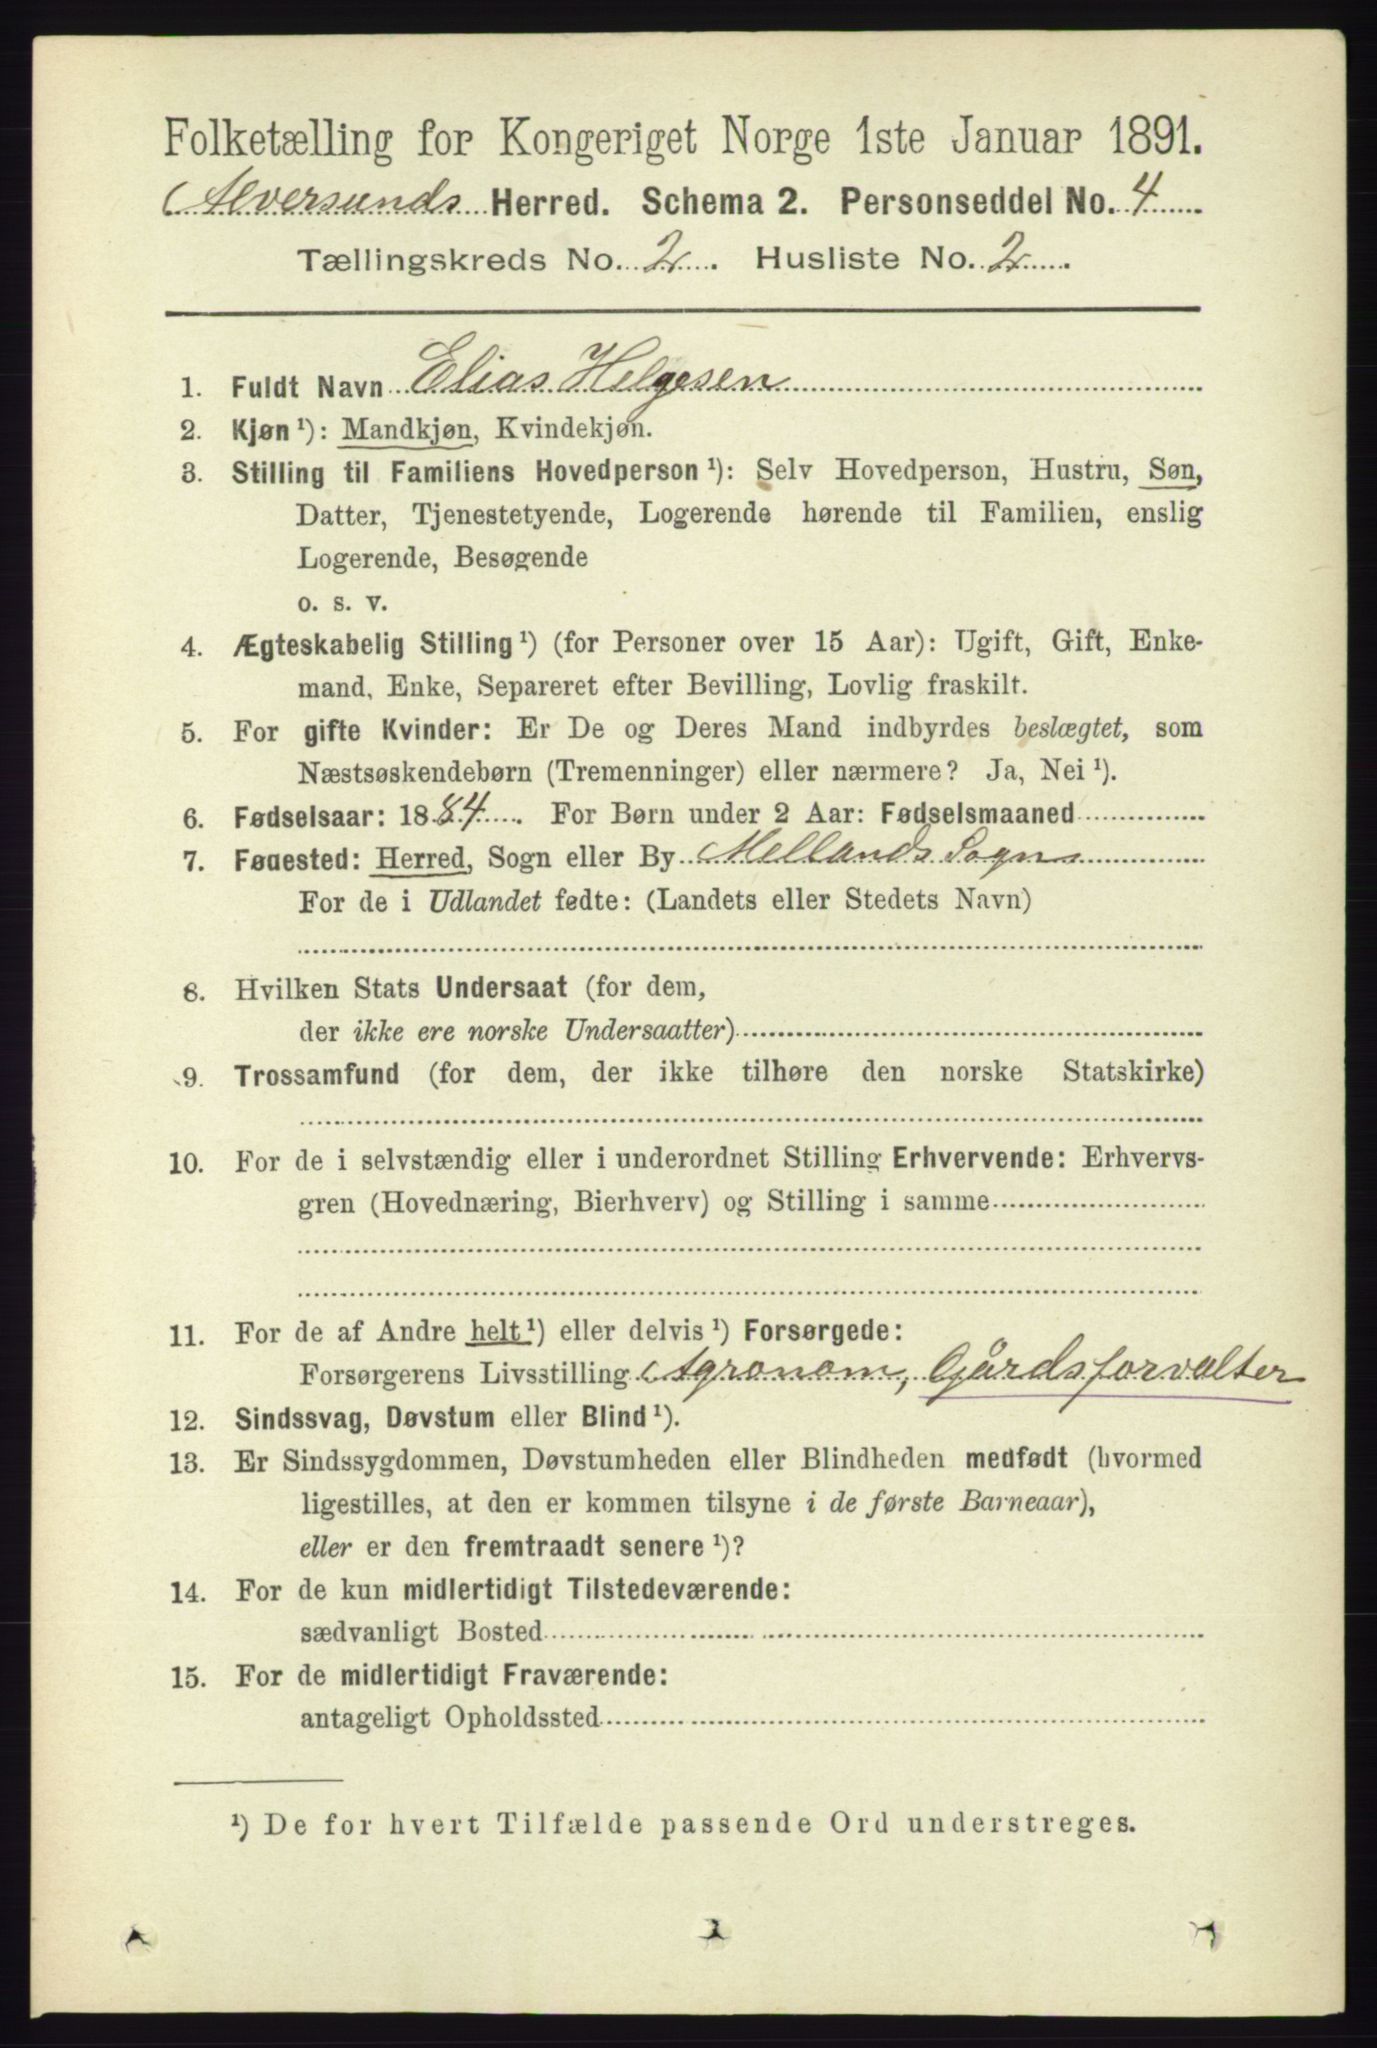 Folketælling for Kongeriget Norge 1ste Januar 1891.
Alversunds Herred. Schema 2. Personseddel No. 4
Tællingskreds No. 2. Husliste No. 2.
1. Fuldt Navn Elias Helgesen
2. Kjøn ¹): Mandkjøn, Kvindekjøn.
3. Stilling til Familiens Hovedperson ¹): Selv Hovedperson, Hustru, Søn,
Datter, Tjenestetyende, Logerende hørende til Familien, enslig
Logerende, Besøgende
o. s. v.
4. Ægteskabelig Stilling ¹) (for Personer over 15 Aar): Ugift, Gift, Enke-
mand, Enke, Separeret efter Bevilling, Lovlig fraskilt.
5. For gifte Kvinder: Er De og Deres Mand indbyrdes beslægtet, som
Næstsøskendebørn (Tremenninger) eller nærmere? Ja, Nei ¹).
6. Fødselsaar: 1884. For Børn under 2 Aar: Fødselsmaaned
7. Fødested: Herred, Sogn eller By Mellands Sogn
For de i Udlandet fødte: (Landets eller Stedets Navn)
8. Hvilken Stats Undersaat (for dem,
der ikke ere norske Undersaatter)
9. Trossamfund (for dem, der ikke tilhøre den norske Statskirke)
10. For de i selvstændig eller i underordnet Stilling Erhvervende: Erhvervs-
gren (Hovednæring, Bierhverv) og Stilling i samme
11. For de af Andre helt ¹) eller delvis ¹) Forsørgede:
Forsørgerens Livsstilling Agronom, Gårdsforvalter
12. Sindssvag, Døvstum eller Blind ¹).
13. Er Sindssygdommen, Døvstumheden eller Blindheden medfødt (hvormed
ligestilles, at den er kommen tilsyne i de første Barneaar),
eller er den fremtraadt senere ¹)?
14. For de kun midlertidigt Tilstedeværende:
sædvanligt Bosted
15. For de midlertidigt Fraværende:
antageligt Opholdssted
¹) De for hvert Tilfælde passende Ord understreges.